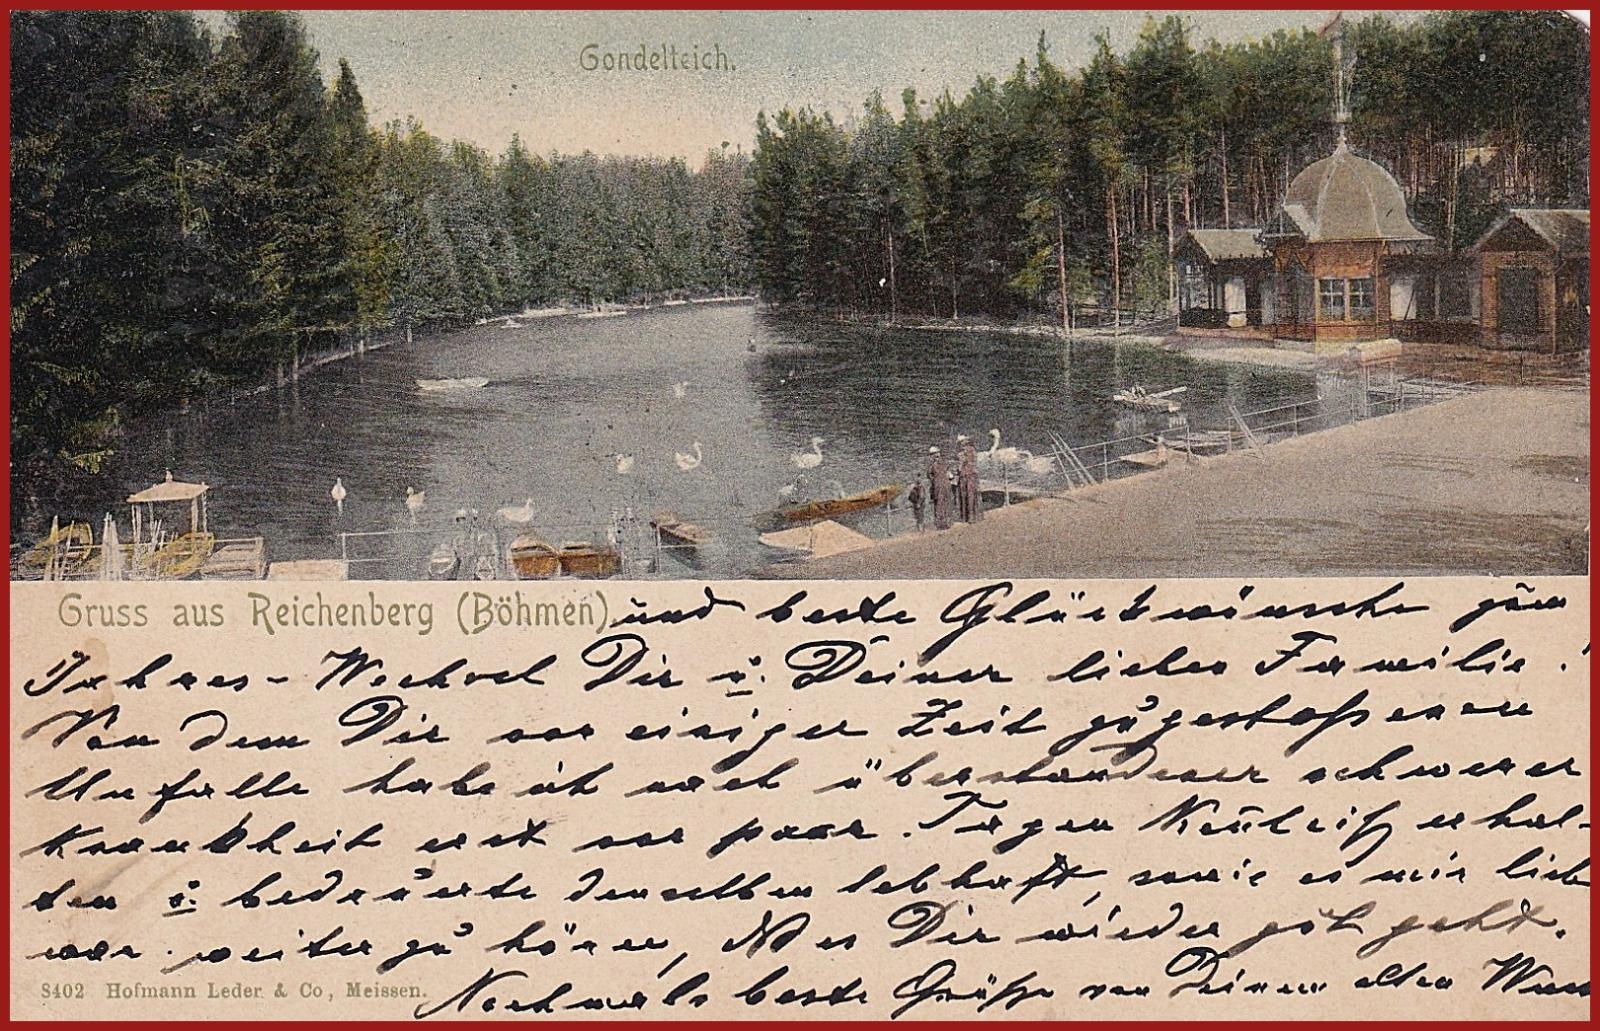 Gondelteich.
Gruss aus Reichenberg (Böhmen) und beste Glückwünsche zum
Jahres-Wechsel Dir u. Deiner lieben Familie!
Von dem Dir vor einiger Zeit zugestoßenen
Unfalle habe ich nach überstandener schwerer
Krankheit erst vor paar Tagen erhal-
ten u. bedauerte denselben lebhaft, sowie es mir lieb
war weiter zu hören, daß es Dir wieder gut geht.
Nochmals beste Grüße von Deinem alten
8402 Hofmann Leder & Co, Meissen.